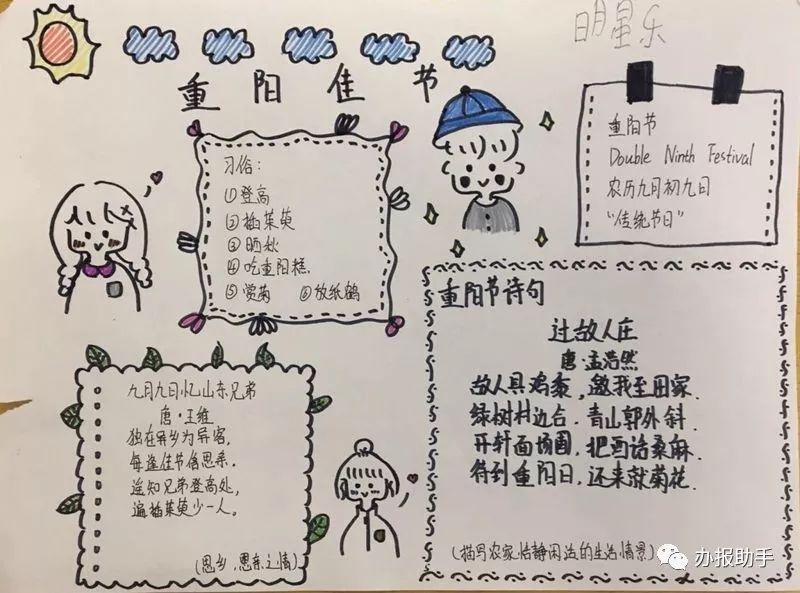 明星乐
重阳佳节
习俗：
①登高
②插茱萸
③晒秋
④吃重阳糕.
⑤赏菊 ⑥放纸鹤
重阳节
Double Ninth Festival
农历九月初九日
“传统节日”
重阳节诗句
过故人庄
唐·孟浩然
故人具鸡黍，邀我至田家.
绿树村边合.青山郭外斜.
开轩面场圃，把酒话桑麻.
待到重阳日，还来就菊花.
(描写农家恬静闲适的生活情景)
九月九日忆山东兄弟
唐·王维
独在异乡为异客，
每逢佳节倍思亲.
遥知兄弟登高处，
遍插茱萸少一人。
(思乡，思亲之情)
办报助手